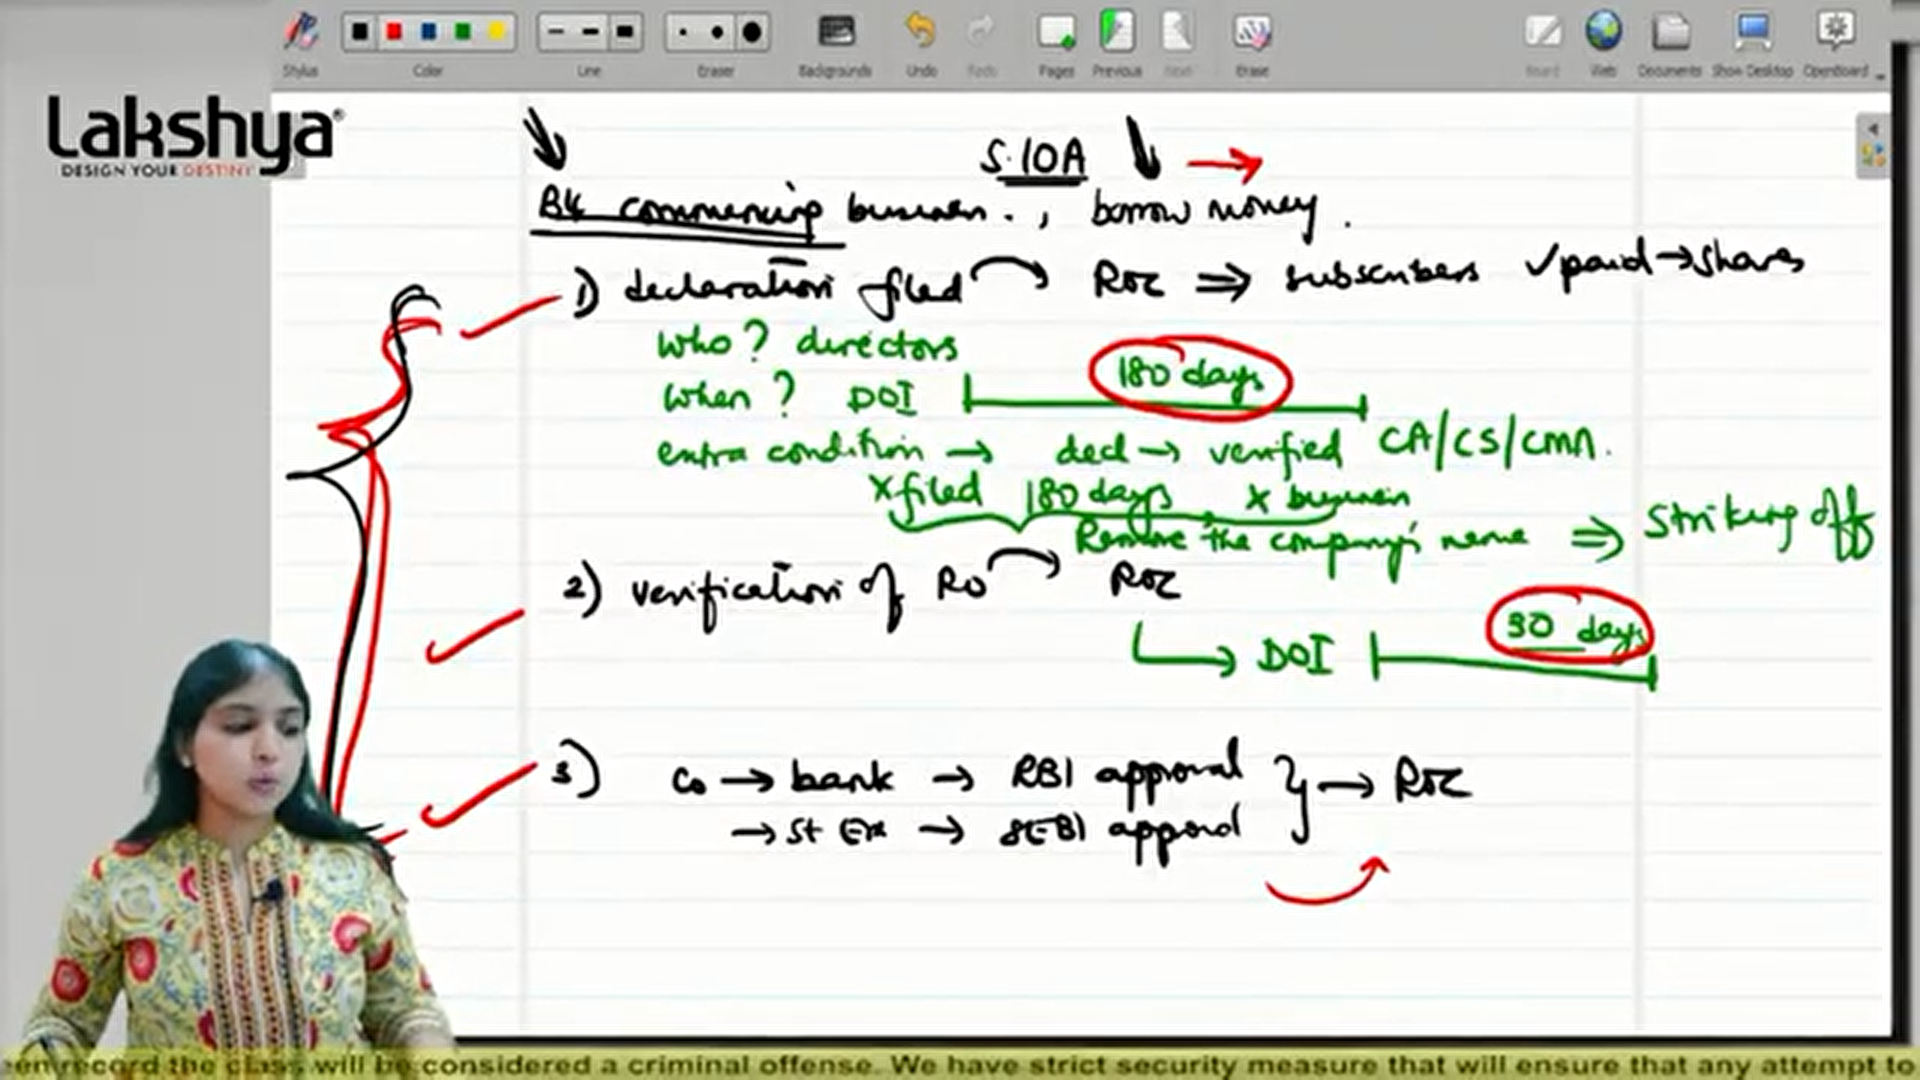 Stylus Color Line Eraser Backgrounds Undo Redo Pages Previous Next Erase Board Web Documents Show Desktop OpenBoard
Lakshya®
DESIGN YOUR DESTINY
S.10A
B4 commencing business. , borrow money.
1) declaration filed ROC ⇒ subscribers ✓paid → shares
Who? directors
When? DOI 180 days
extra condition → decl → verified CA/CS/CMA.
X filed 180 days X business
Remove the company's name ⇒ Striking off
2) verification of RO ROC
DOI 30 days
3) Co → bank → RBI approval } → ROC
→ St Ex → SEBI approval
record the class will be considered a criminal offense. We have strict security measure that will ensure that any attempt to